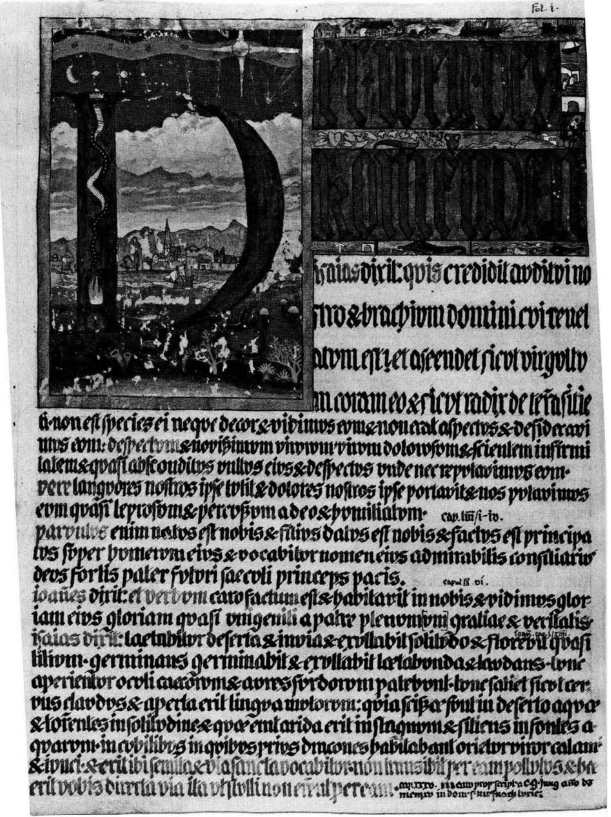 fol. i.
DER WEG DES
KOMMENDEN
isaias dixit: quis credidit auditui no
stro & brachium domini cui revel
atum est? et ascendet sicut virgultu
m coram eo & sicut radix de terra sitie
ti. non est species ei neque decor & vidimus eum & non erat aspectus & desideravi
mus eum: despectum & novissimum virorum virum dolorum & scientem infirmi
tatem & quasi absconditus vultus eius & despectus unde nec reputavimus eum.
vere languores nostros ipse tulit & dolores nostros ipse portavit & nos putavimus
eum quasi leprosum & percussum a deo & humiliatum. cap. liii/i-iv.
parvulus enim natus est nobis & filius datus est nobis & factus est principa
tus super humerum eius & vocabitur nomen eius admirabilis consiliarius
deus fortis pater futuri saeculi princeps pacis. caput ix. vi.
ioannes dixit: et verbum caro factum est & habitavit in nobis & vidimus glor
iam eius gloriam quasi unigeniti a patre plenum gratiae & veritatis.
isaias dixit: laetabitur deserta & invia & exultabit solitudo & florebit quasi
lilium. germinans germinabit & exultabit laetabunda & laudans. tunc
aperientur oculi caecorum & aures surdorum patebunt. tunc saliet sicut cer
vus claudus & aperta erit lingua mutorum: quia scissae sunt in deserto aquae
& torrentes in solitudine & quae erat arida erit in stagnum & sitiens in fontes a
quarum. in cubilibus in quibus prius dracones habitabant orietur viror calami
& iunci. & erit ibi semita & via sancta vocabitur. non transibit per eam pollutus & haec
erit vobis directa via ita ut stulti non errent per eam. cap. xxxv.